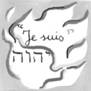 "Je suis"
יהוה